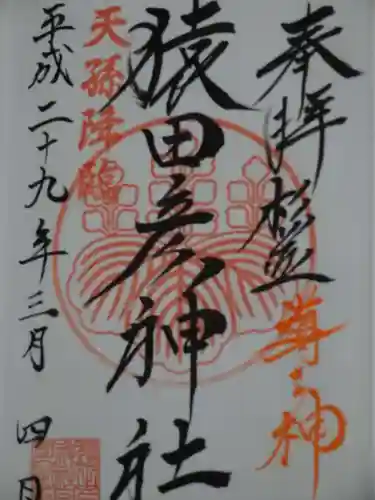 奉拝
杉並
導きの神
猿田彦神社
天孫降臨
平成二十九年三月四日